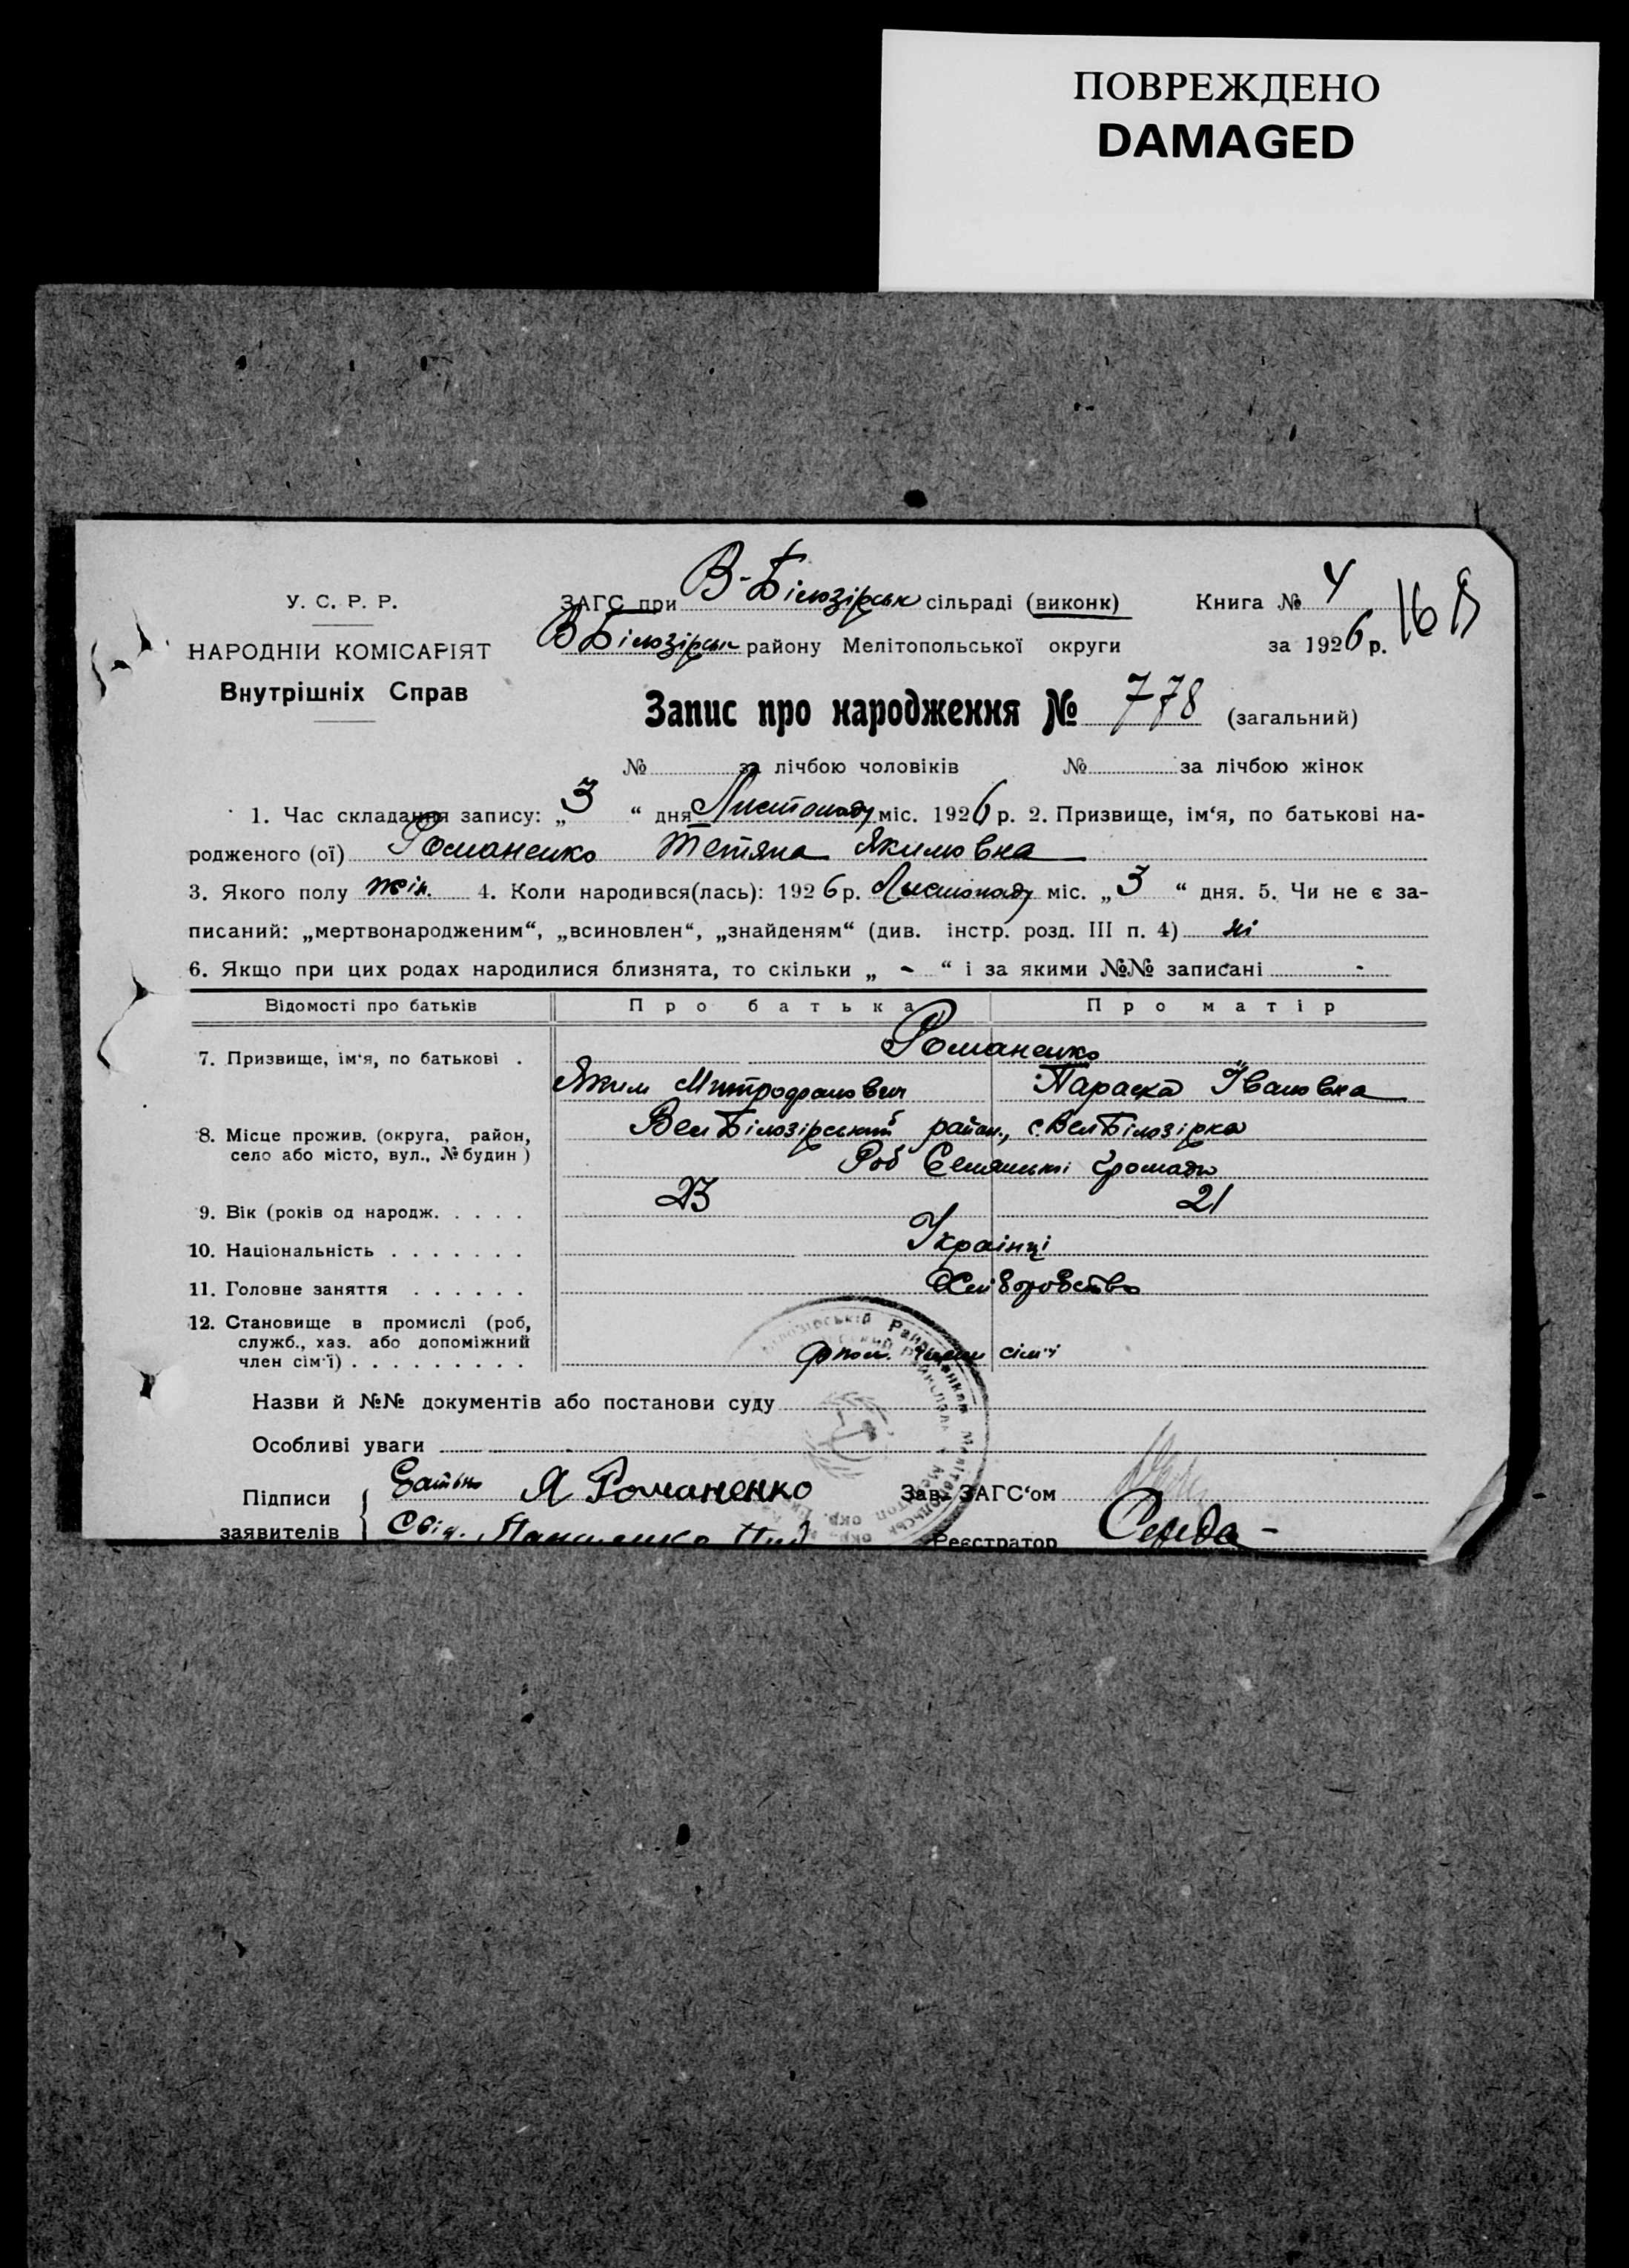 ПОВРЕЖДЕНО
DAMAGED
У. С. Р. Р.
НАРОДНІЙ КОМІСАРІЯТ
Внутрішніх Справ
ЗАГС при В-Білозірськ сільраді (виконк)
Книга № 4
16
В Білозірськ району Мелітопольської округи
за 1926 р.
Запис про народження № 778 (загальний)
№ за лічбою чоловіків № за лічбою жінок
1. Час складання запису: „3“ дня Листопаду міс. 1926 р. 2. Призвище, ім‘я, по батькові на-
родженого (ої) Романенко Тетяна Якимовна
3. Якого полу жін. 4. Коли народився(лась): 1926 р. Листопаду міс. „3“ дня. 5. Чи не є за-
писаний: „мертвонародженим“, „всиновлен“, „знайденям“ (див. інстр. розд. III п. 4) ні
6. Якщо при цих родах народилися близнята, то скільки „ - “ і за якими №№ записані -
Відомості про батьків Про батька Про матір
7. Призвище, ім‘я, по батькові . Романенко
Яким Митрофанович Параска Івановна
8. Місце прожив. (округа, район,
село або місто, вул., № будин)
Вел Білозірський район., с. Вел Білозірка
Роб громади
9. Вік (років од народж. . . . . 23 21
10. Національність . . . . . . . Українці
11. Головне заняття . . . . . .
12. Становище в промислі (роб,
служб., хаз. або допоміжний
член сім‘ї) . . . . . . . . .
члени сім'ї
Назви й №№ документів або постанови суду
Особливі уваги
Підписи
заявителів
Батько Я Романенко
Свід.
Зав. ЗАГС‘ом
Реєстратор Середа